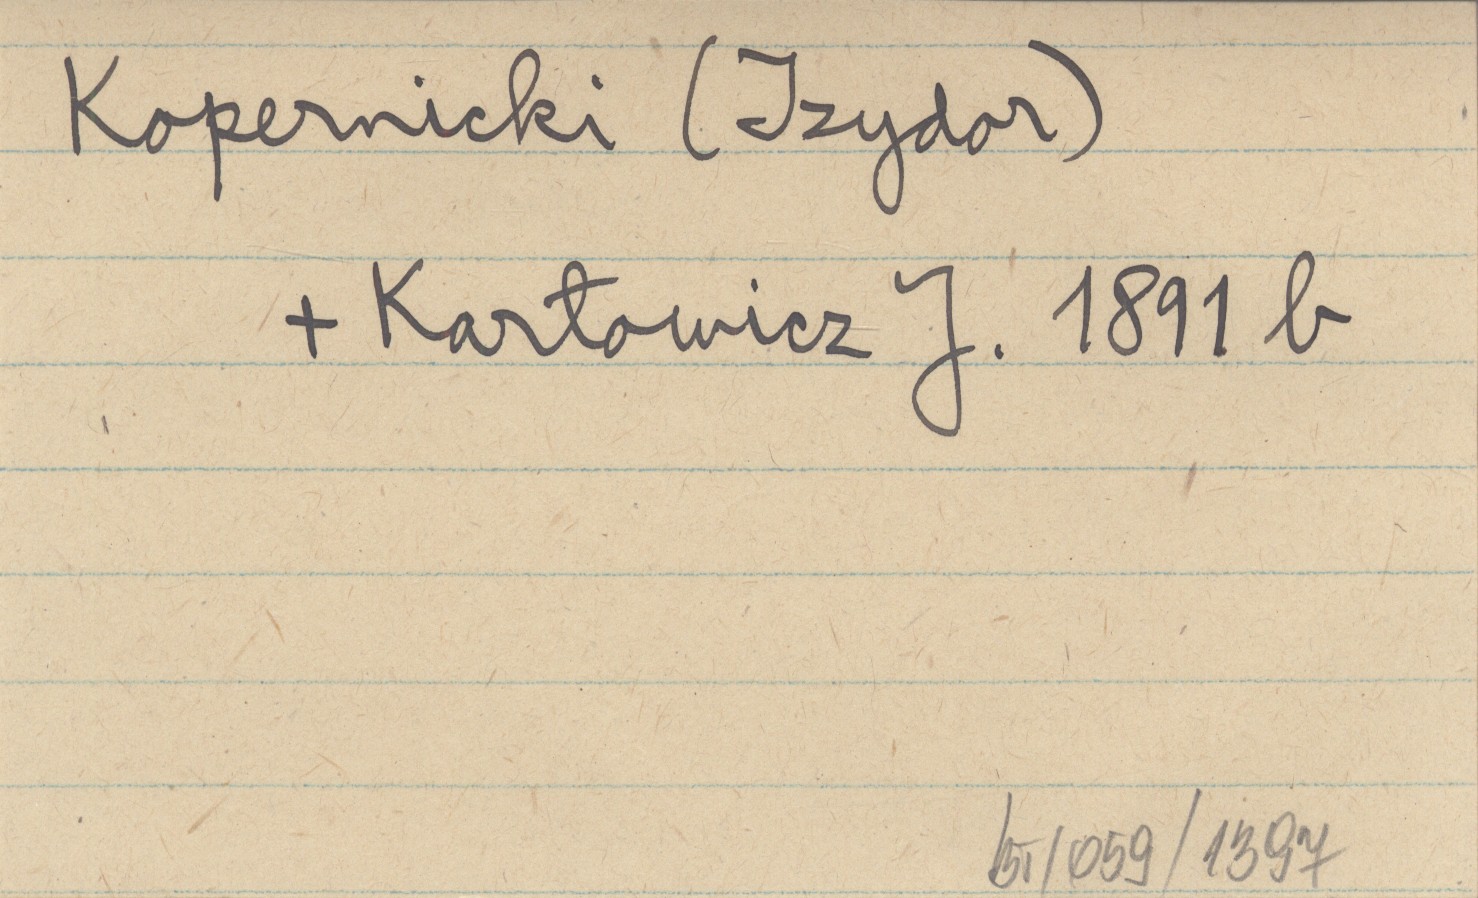 Kopernicki (Izydor)
+ Karłowicz J. 1891 b
/059/1397